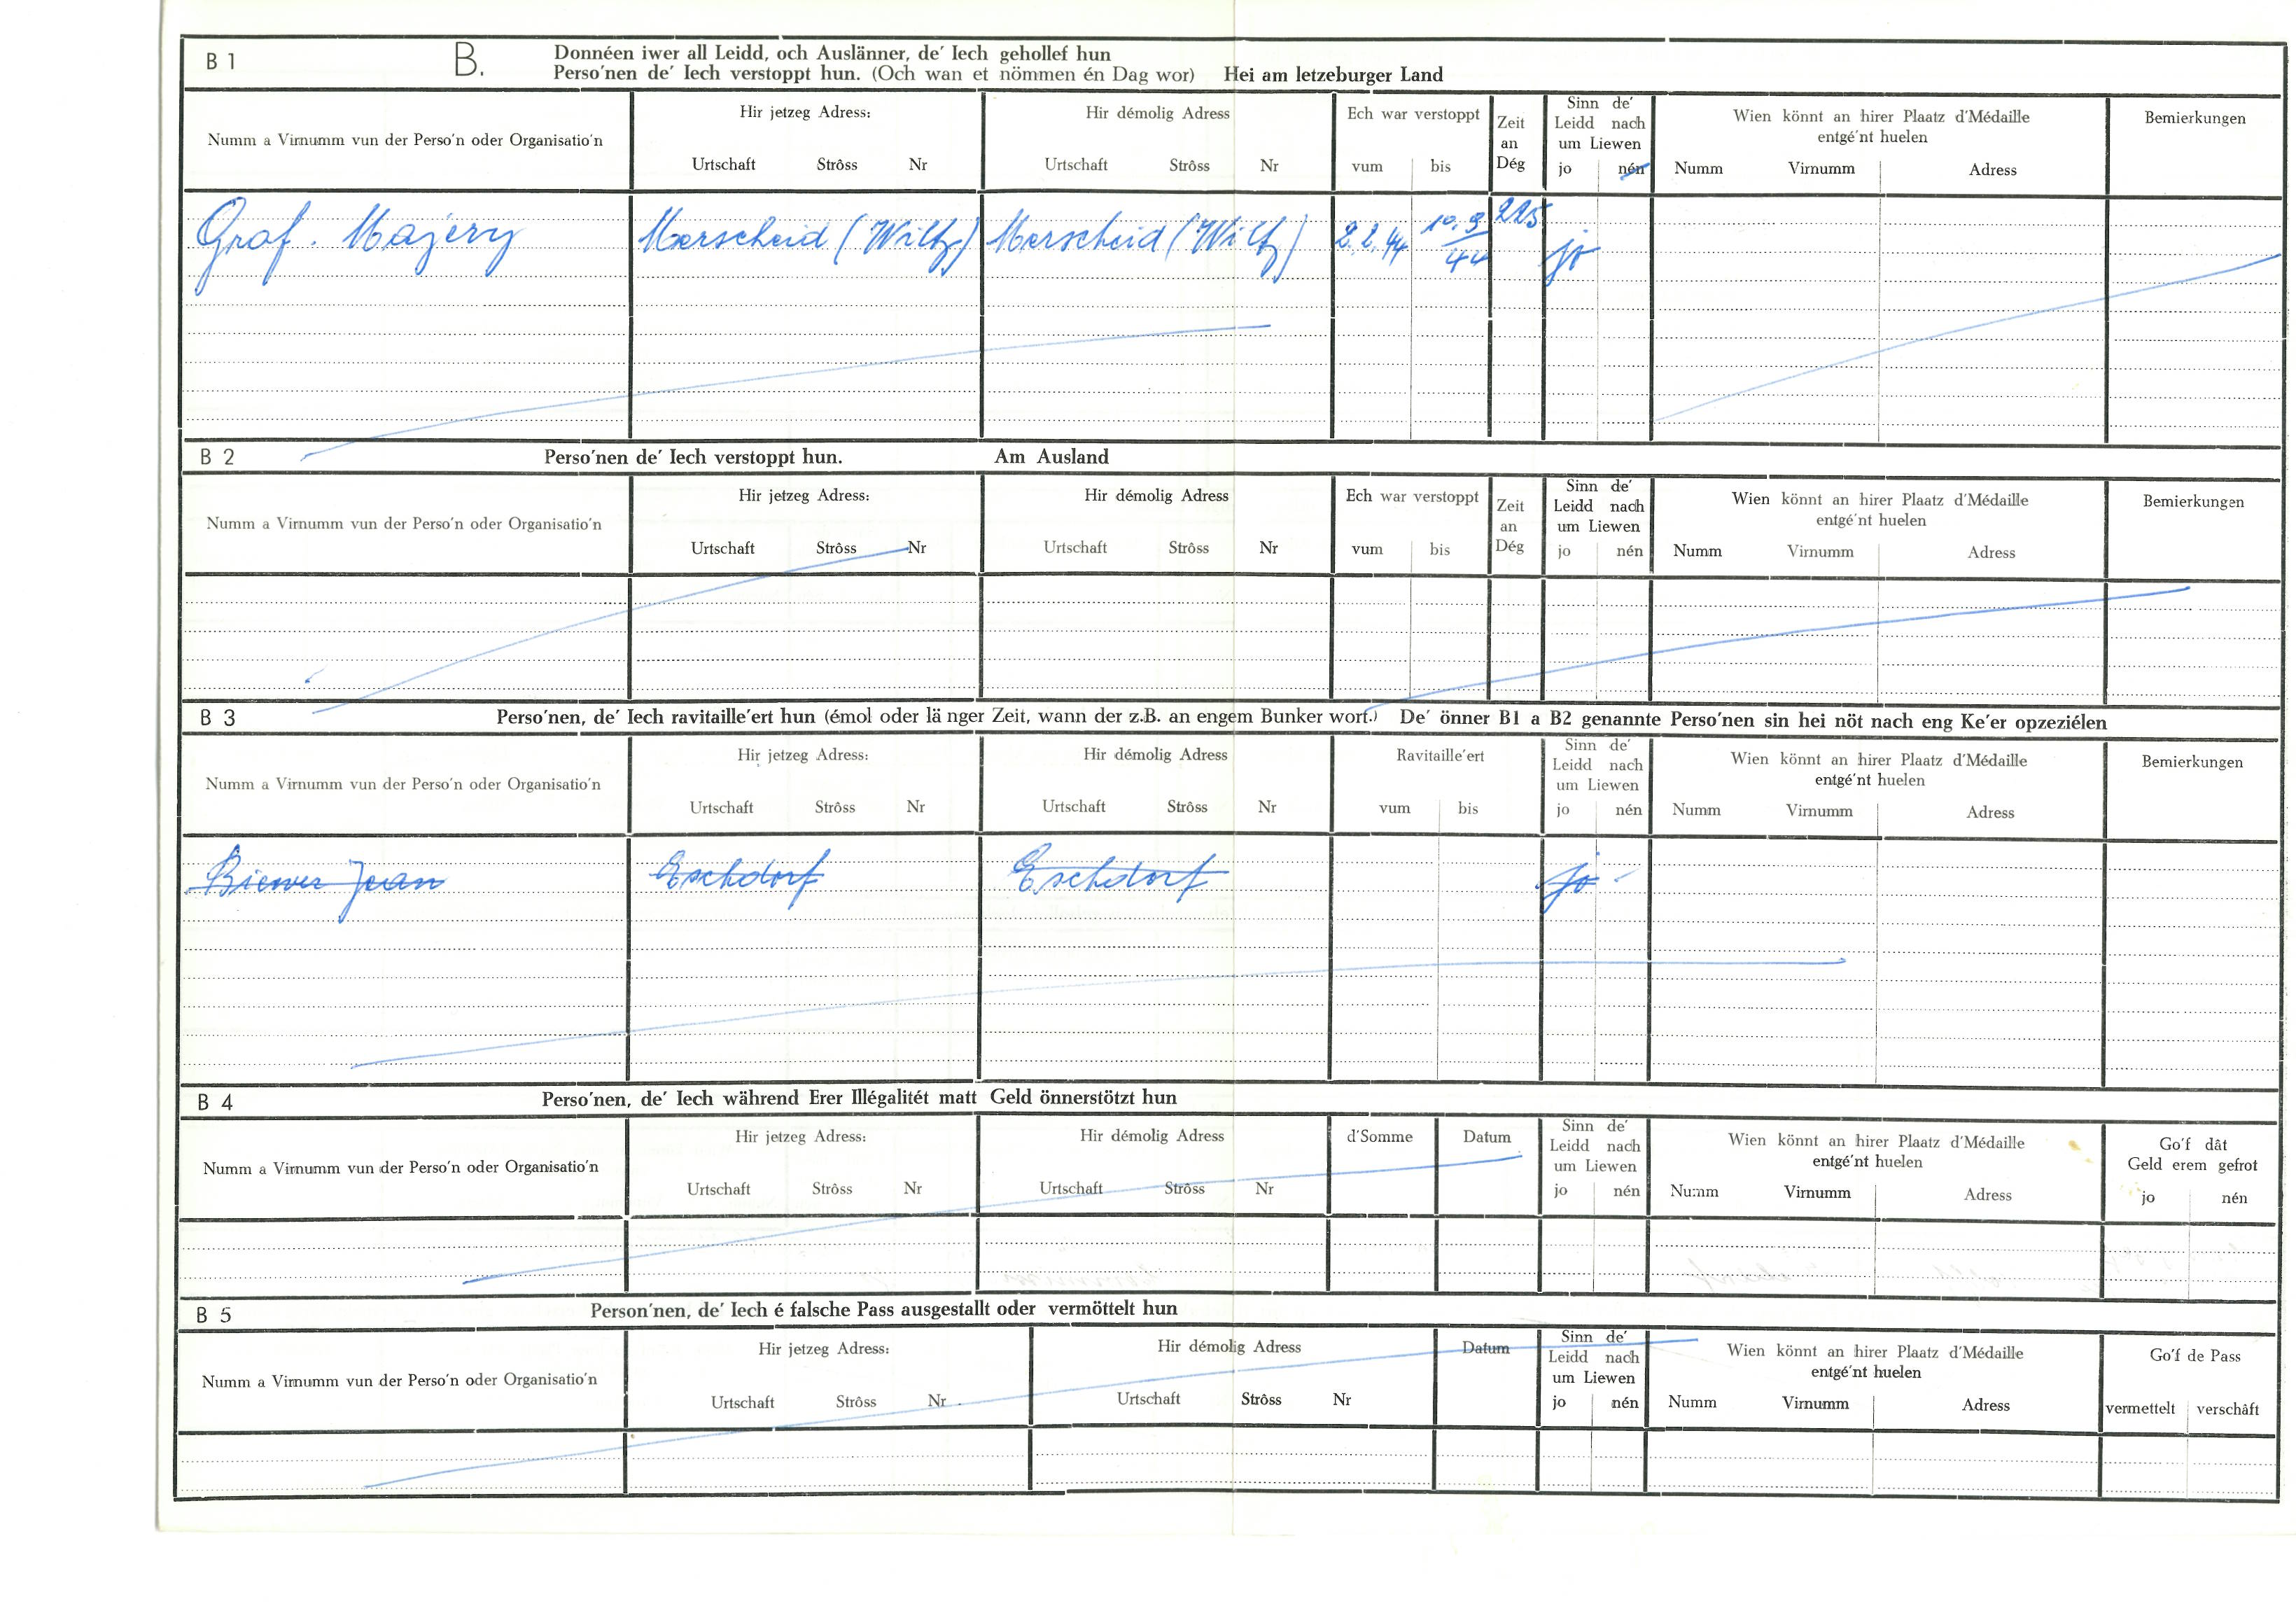 B 1 B. Donnéen iwer all Leidd, och Auslänner, de' Iech gehollef hun
Perso'nen de' Iech verstoppt hun. (Och wan et nömmen én Dag wor) Hei am letzeburger Land
Numm a Virnumm vun der Perso'n oder Organisatio'n
Hir jetzeg Adress:
Urtschaft Strôss Nr
Hir démolig Adress
Urtschaft Strôss Nr
Ech war verstoppt
vum bis
Zeit
an
Dég
Sinn de'
Leidd nach
um Liewen
jo nén
Wien könnt an hirer Plaatz d'Médaille
entgé'nt huelen
Numm Virnumm Adress
Bemierkungen
Graf. Majery Merscheid (Wiltz) Merscheid (Wiltz) 2.2.44 10.9/44 225 jo
B 2 Perso'nen de' Iech verstoppt hun. Am Ausland
Numm a Virnumm vun der Perso'n oder Organisatio'n
Hir jetzeg Adress:
Urtschaft Strôss Nr
Hir démolig Adress
Urtschaft Strôss Nr
Ech war verstoppt
vum bis
Zeit
an
Dég
Sinn de'
Leidd nach
um Liewen
jo nén
Wien könnt an hirer Plaatz d'Médaille
entgé'nt huelen
Numm Virnumm Adress
Bemierkungen
B 3 Perso'nen, de' Iech ravitaille'ert hun (émol oder lä nger Zeit, wann der z.B. an engem Bunker wort.) De' önner B1 a B2 genannte Perso'nen sin hei nöt nach eng Ke'er opzeziélen
Numm a Virnumm vun der Perso'n oder Organisatio'n
Hir jetzeg Adress:
Urtschaft Strôss Nr
Hir démolig Adress
Urtschaft Strôss Nr
Ravitaille'ert
vum bis
Sinn de'
Leidd nach
um Liewen
jo nén
Wien könnt an hirer Plaatz d'Médaille
entgé'nt huelen
Numm Virnumm Adress
Bemierkungen
Biewer Jean Eschdorf Eschdorf jo
B 4 Perso'nen, de' Iech während Erer Illégalitét matt Geld önnerstötzt hun
Numm a Virnumm vun der Perso'n oder Organisatio'n
Hir jetzeg Adress:
Urtschaft Strôss Nr
Hir démolig Adress
Urtschaft Strôss Nr
d'Somme
Datum
Sinn de'
Leidd nach
um Liewen
jo nén
Wien könnt an hirer Plaatz d'Médaille
entgé'nt huelen
Numm Virnumm Adress
Go'f dât
Geld erem gefrot
jo nén
B 5 Person'nen, de' Iech é falsche Pass ausgestallt oder vermöttelt hun
Numm a Virnumm vun der Perso'n oder Organisatio'n
Hir jetzeg Adress:
Urtschaft Strôss Nr
Hir démolig Adress
Urtschaft Strôss Nr
Datum
Sinn de'
Leidd nach
um Liewen
jo nén
Wien könnt an hirer Plaatz d'Médaille
entgé'nt huelen
Numm Virnumm Adress
Go'f de Pass
vermettelt verschâft